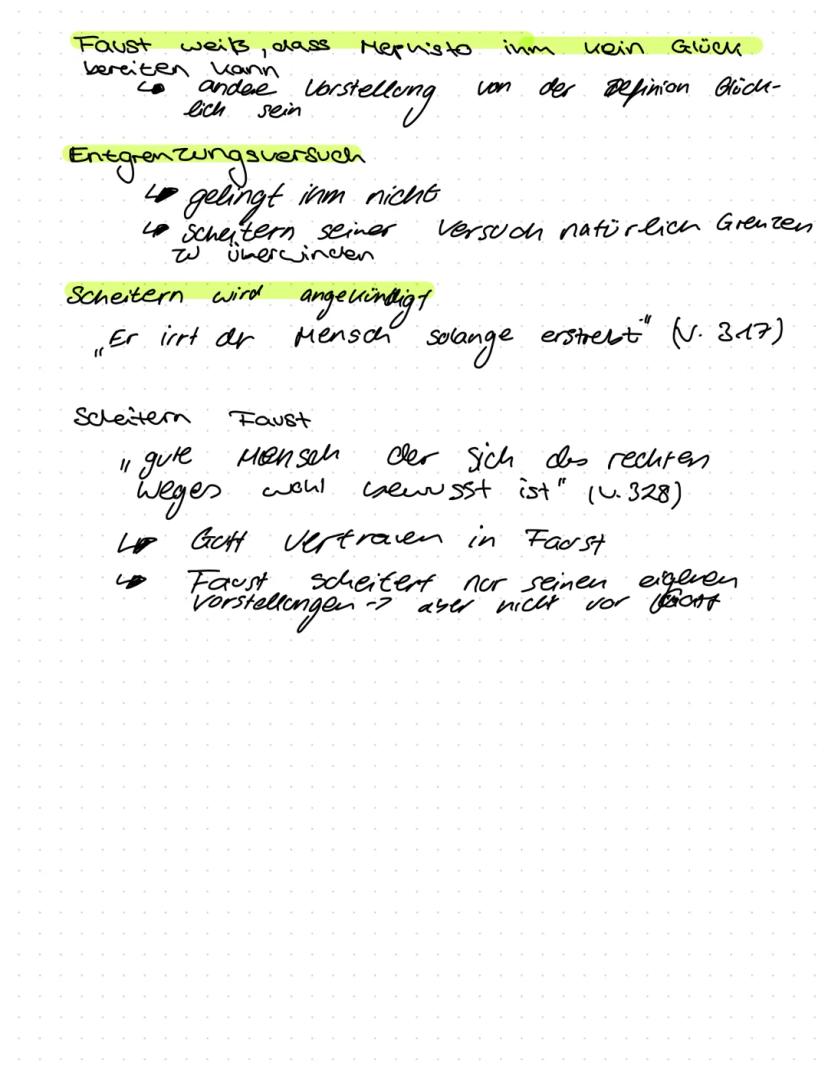 Faust weiß, dass Mephisto ihm kein Glück
bereiten kann
↳ andee Vorstellung von der Definion Glück-
lich sein
Entgrenzungsversuch
↳ gelingt ihm nicht
↳ scheitern seiner Versuch natürlich Grenzen
zu überwinden
Scheitern wird angekündigt
„Er irrt dr Mensch solange erstrebt" (V. 317)
Scheitern Faust
„gute Mensch der sich des rechten
Weges wohl bewusst ist" (V. 328)
↳ Gott Vertrauen in Faust
↳ Faust scheitert nur seinen eigenen
Vorstellungen -> aber nicht vor Gott